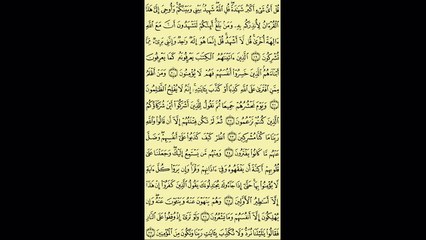 قُلْ أَيُّ شَيْءٍ أَكْبَرُ شَهَٰدَةً قُلِ ٱللَّهُ شَهِيدٌۢ بَيْنِي وَبَيْنَكُمْ وَأُوحِيَ إِلَيَّ هَٰذَا
ٱلْقُرْءَانُ لِأُنذِرَكُم بِهِۦ وَمَنۢ بَلَغَ أَئِنَّكُمْ لَتَشْهَدُونَ أَنَّ مَعَ ٱللَّهِ
ءَالِهَةً أُخْرَىٰ قُل لَّآ أَشْهَدُ قُلْ إِنَّمَا هُوَ إِلَٰهٌ وَٰحِدٌ وَإِنَّنِي بَرِيٓءٌ مِّمَّا
تُشْرِكُونَ ١٩ ٱلَّذِينَ ءَاتَيْنَٰهُمُ ٱلْكِتَٰبَ يَعْرِفُونَهُۥ كَمَا يَعْرِفُونَ
أَبْنَآءَهُمُ ٱلَّذِينَ خَسِرُوٓا۟ أَنفُسَهُمْ فَهُمْ لَا يُؤْمِنُونَ ٢٠ وَمَنْ أَظْلَمُ
مِمَّنِ ٱفْتَرَىٰ عَلَى ٱللَّهِ كَذِبًا أَوْ كَذَّبَ بِـَٔايَٰتِهِۦٓ إِنَّهُۥ لَا يُفْلِحُ ٱلظَّٰلِمُونَ
٢١ وَيَوْمَ نَحْشُرُهُمْ جَمِيعًا ثُمَّ نَقُولُ لِلَّذِينَ أَشْرَكُوٓا۟ أَيْنَ شُرَكَآؤُكُمُ
ٱلَّذِينَ كُنتُمْ تَزْعُمُونَ ٢٢ ثُمَّ لَمْ تَكُن فِتْنَتُهُمْ إِلَّآ أَن قَالُوا۟ وَٱللَّهِ
رَبِّنَا مَا كُنَّا مُشْرِكِينَ ٢٣ ٱنظُرْ كَيْفَ كَذَبُوا۟ عَلَىٰٓ أَنفُسِهِمْ وَضَلَّ
عَنْهُم مَّا كَانُوا۟ يَفْتَرُونَ ٢٤ وَمِنْهُم مَّن يَسْتَمِعُ إِلَيْكَ وَجَعَلْنَا عَلَىٰ
قُلُوبِهِمْ أَكِنَّةً أَن يَفْقَهُوهُ وَفِيٓ ءَاذَانِهِمْ وَقْرًا وَإِن يَرَوْا۟ كُلَّ ءَايَةٍ
لَّا يُؤْمِنُوا۟ بِهَا حَتَّىٰٓ إِذَا جَآءُوكَ يُجَٰدِلُونَكَ يَقُولُ ٱلَّذِينَ كَفَرُوٓا۟ إِنْ هَٰذَآ
إِلَّآ أَسَٰطِيرُ ٱلْأَوَّلِينَ ٢٥ وَهُمْ يَنْهَوْنَ عَنْهُ وَيَنْـَٔوْنَ عَنْهُ وَإِن
يُهْلِكُونَ إِلَّآ أَنفُسَهُمْ وَمَا يَشْعُرُونَ ٢٦ وَلَوْ تَرَىٰٓ إِذْ وُقِفُوا۟ عَلَى ٱلنَّارِ
فَقَالُوا۟ يَٰلَيْتَنَا نُرَدُّ وَلَا نُكَذِّبَ بِـَٔايَٰتِ رَبِّنَا وَنَكُونَ مِنَ ٱلْمُؤْمِنِينَ ٢٧